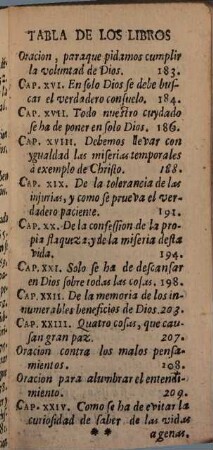 TABLA DE LOS LIBROS
Oracion, paraque pidamos cumplir
la voluntad de Dios. 183.
CAP. XVI. En solo Dios se debe bus-
car el verdadero consuelo. 184.
CAP. XVII. Todo nuestro cuydado
se ha de poner en solo Dios. 186.
CAP. XVIII. Debemos llevar con
ygualdad las miserias temporales
à exemplo de Christo. 188.
CAP. XIX. De la tolerancia de las
injurias, y como se prueva el ver-
dadero paciente. 191.
CAP. XX. De la confession de la pro-
pia flaqueza: y de la miseria desta
vida. 194.
CAP. XXI. Solo se ha de descansar
en Dios sobre todas las cosas. 198.
CAP. XXII. De la memoria de los in-
numerables beneficios de Dios. 203.
CAP. XXIII. Quatro cosas, que cau-
san gran paz. 207.
Oracion contra los malos pensa-
mientos. 208.
Oracion para alumbrar el entendi-
miento. 209.
CAP. XXIV. Como se ha de evitar la
curiosidad de saber de las vidas
* * agenas.